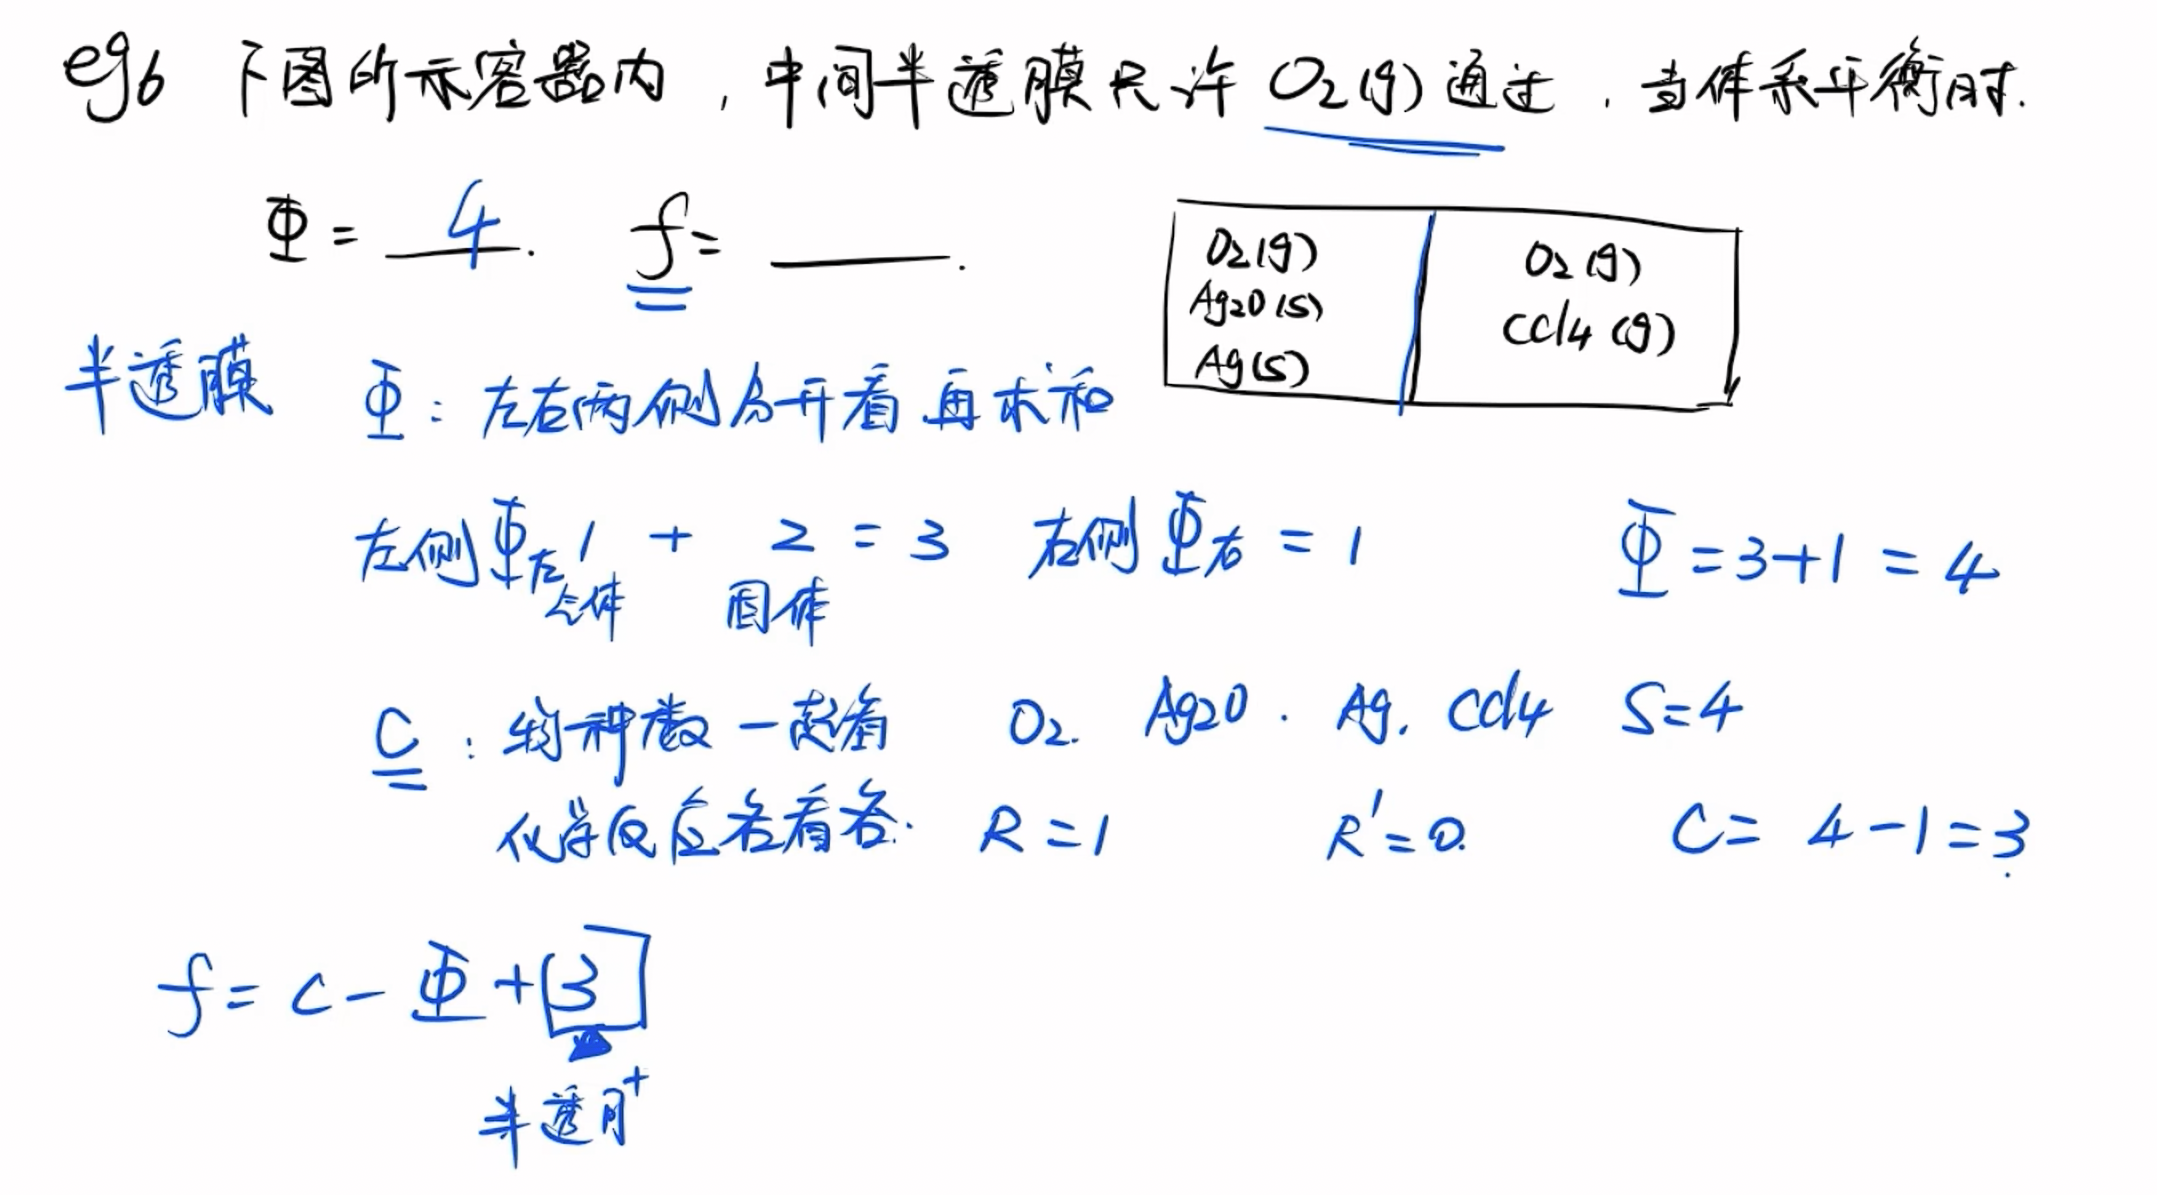 eg6 下图所示容器内，中间半透膜只许 O₂(g) 通过，当体系平衡时.
Φ = 4. f = ____.
O₂(g)
Ag₂O(s)
Ag(s)
O₂(g)
CCl₄(g)
半透膜 Φ：左右两侧分开看再求和
左侧Φ左 1 + 2 = 3 右侧Φ右 = 1 Φ = 3+1 = 4
气体 固体
C：物种数一起看 O₂. Ag₂O. Ag. CCl₄ S=4
化学反应各看各. R=1 R'=0. C= 4-1=3
f = c - Φ + 3
半透